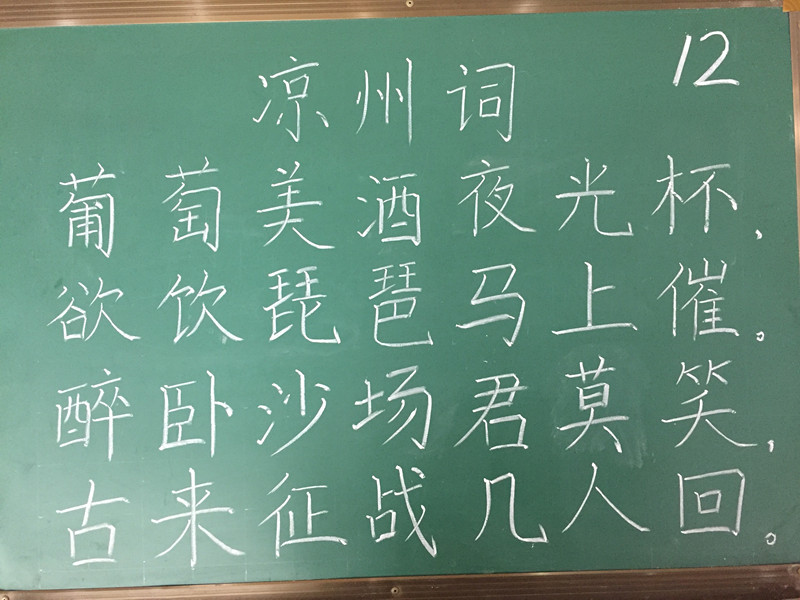 12
凉州词
葡萄美酒夜光杯,
欲饮琵琶马上催。
醉卧沙场君莫笑,
古来征战几人回。